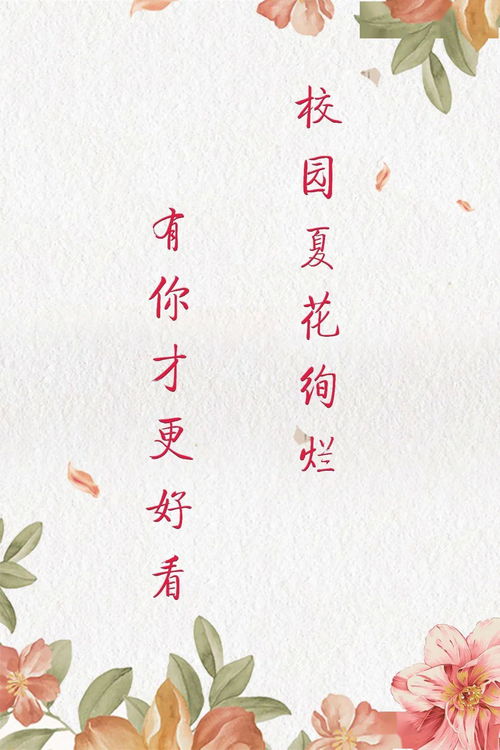 校园夏花绚烂
有你才更好看